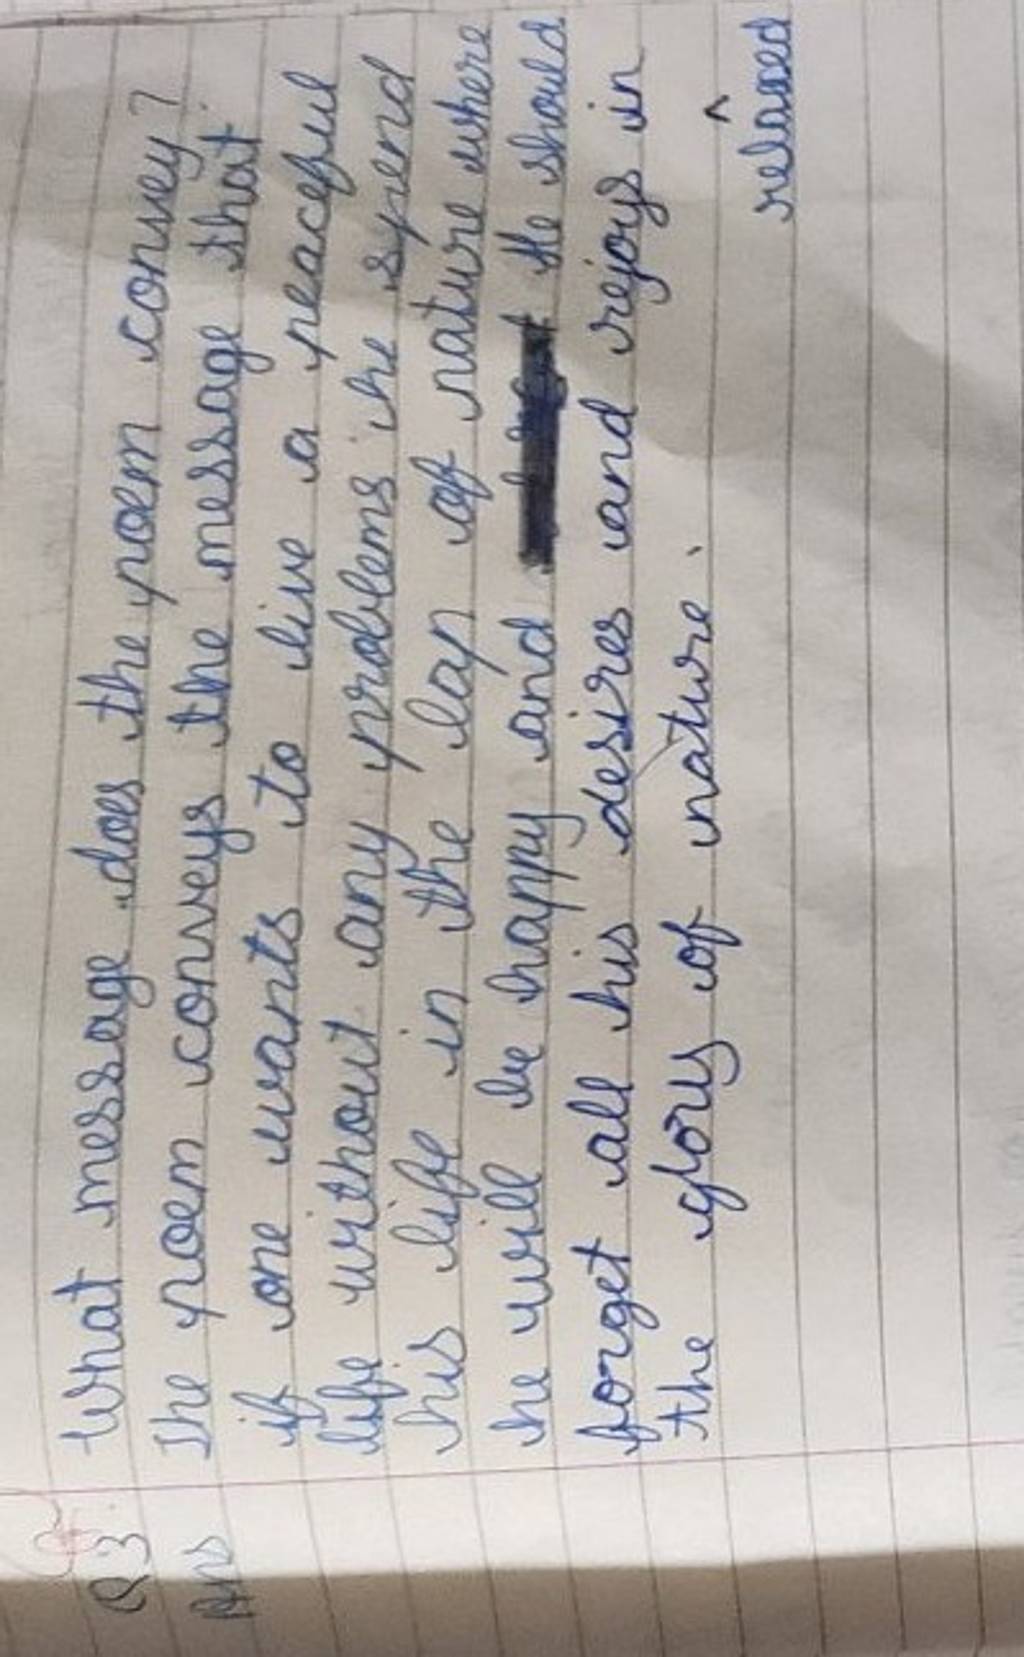 Q3. What message does the poem convey?
Ans The poem conveys the message that
if one wants to live a peaceful
life without any problems, he spend
his life in the lap of nature where
he will be happy and the should
forget all his desires and rejoys in
the glory of nature. ^
relaxed